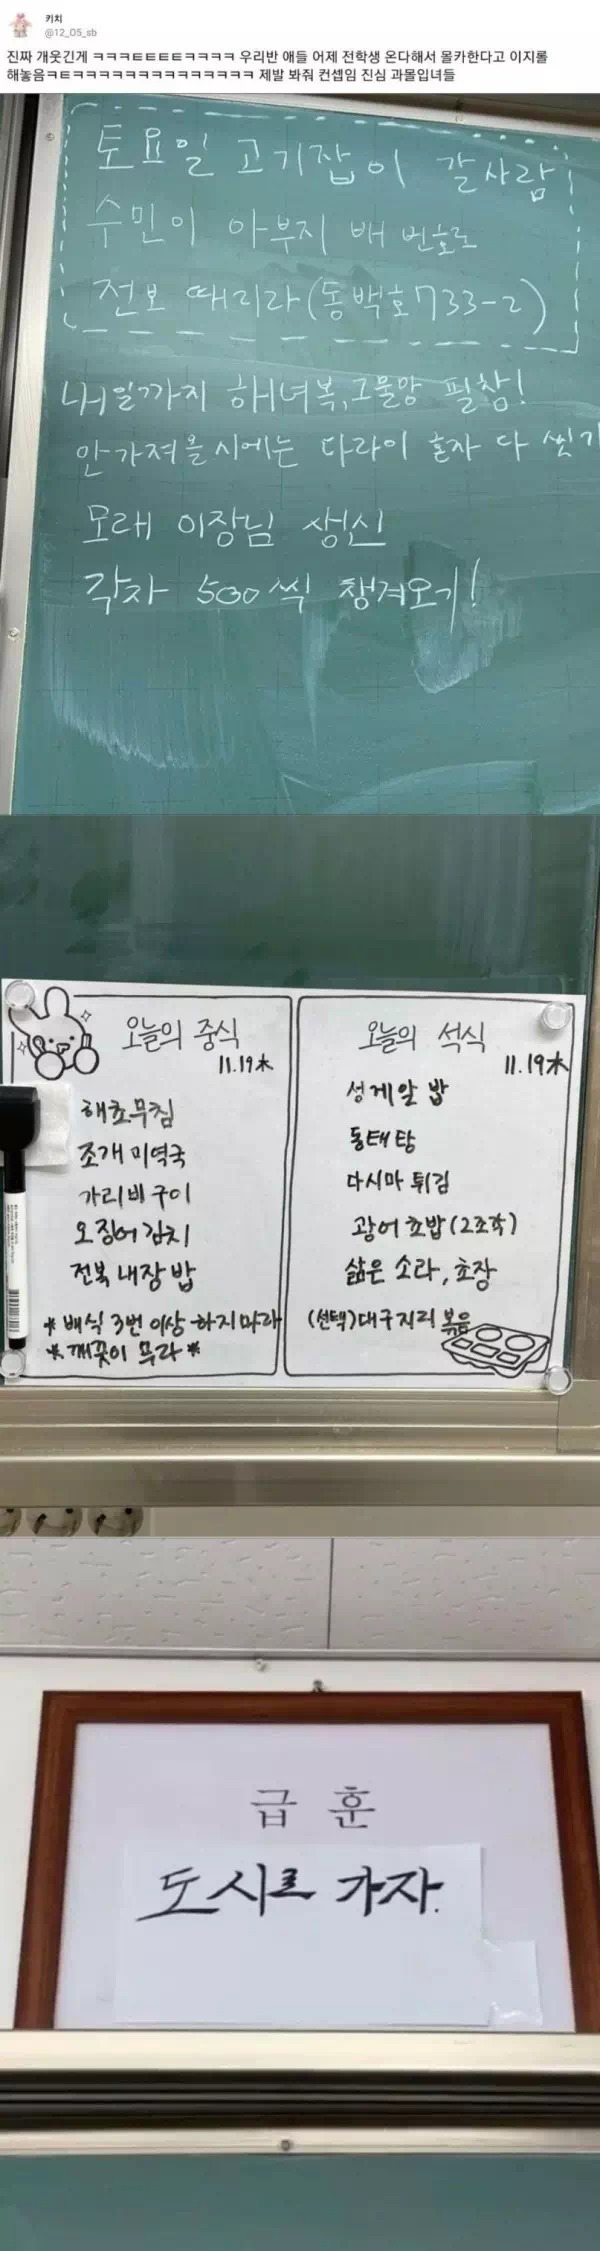 키치
@12_05_sb
진짜 개웃긴게 ㅋㅋㅋㅌㅌㅌㅌㅋㅋㅋㅋ 우리반 애들 어제 전학생 온다해서 몰카한다고 이지롤
해놓음ㅋㅌㅋㅋㅋㅋㅋㅋㅋㅋㅋㅋㅋㅋㅋㅋ 제발 봐줘 컨셉임 진심 과몰입녀들
토요일 고기잡이 갈사람
수민이 아부지 배 번호로
전보 때리라(동백호733-2)
내일까지 해녀복,그물망 필참!
안가져올시에는 다라이 혼자 다 씻기
모래 이장님 생신
각자 500씩 챙겨오기!
오늘의 중식
11.19木
해초무침
조개미역국
가리비구이
오징어김치
전복내장밥
*배식 3번 이상 하지마라
*깨끗이 무라*
오늘의 석식
11.19木
성게알밥
동태탕
다시마튀김
광어초밥(2조각)
삶은 소라, 초장
(선택)대구지리볶음
급훈
도시로 가자.